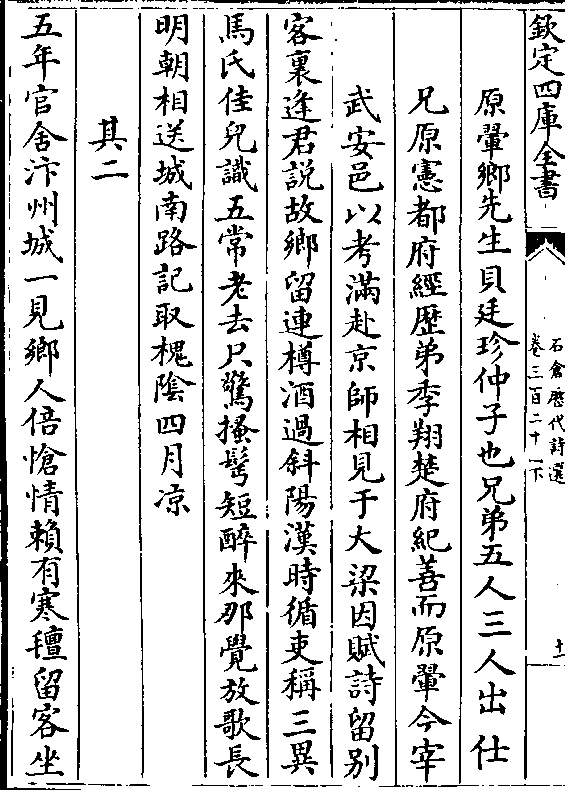 欽定四庫全書
石倉歷代詩選
卷三百二十一下
十一
原翬鄉先生貝廷珍仲子也兄弟五人三人出仕
兄原憲都府經歷弟季翔楚府紀善而原翬今宰
武安邑以考滿赴京師相見于大梁因賦詩留別
客裏逢君説故鄉留連樽酒過斜陽漢時循吏稱三異
馬氏佳兒識五常老去只驚搔髩短醉來那覺放歌長
明朝相送城南路記取槐陰四月凉
其二
五年官舍汴州城一見鄉人倍愴情賴有寒氊留客坐